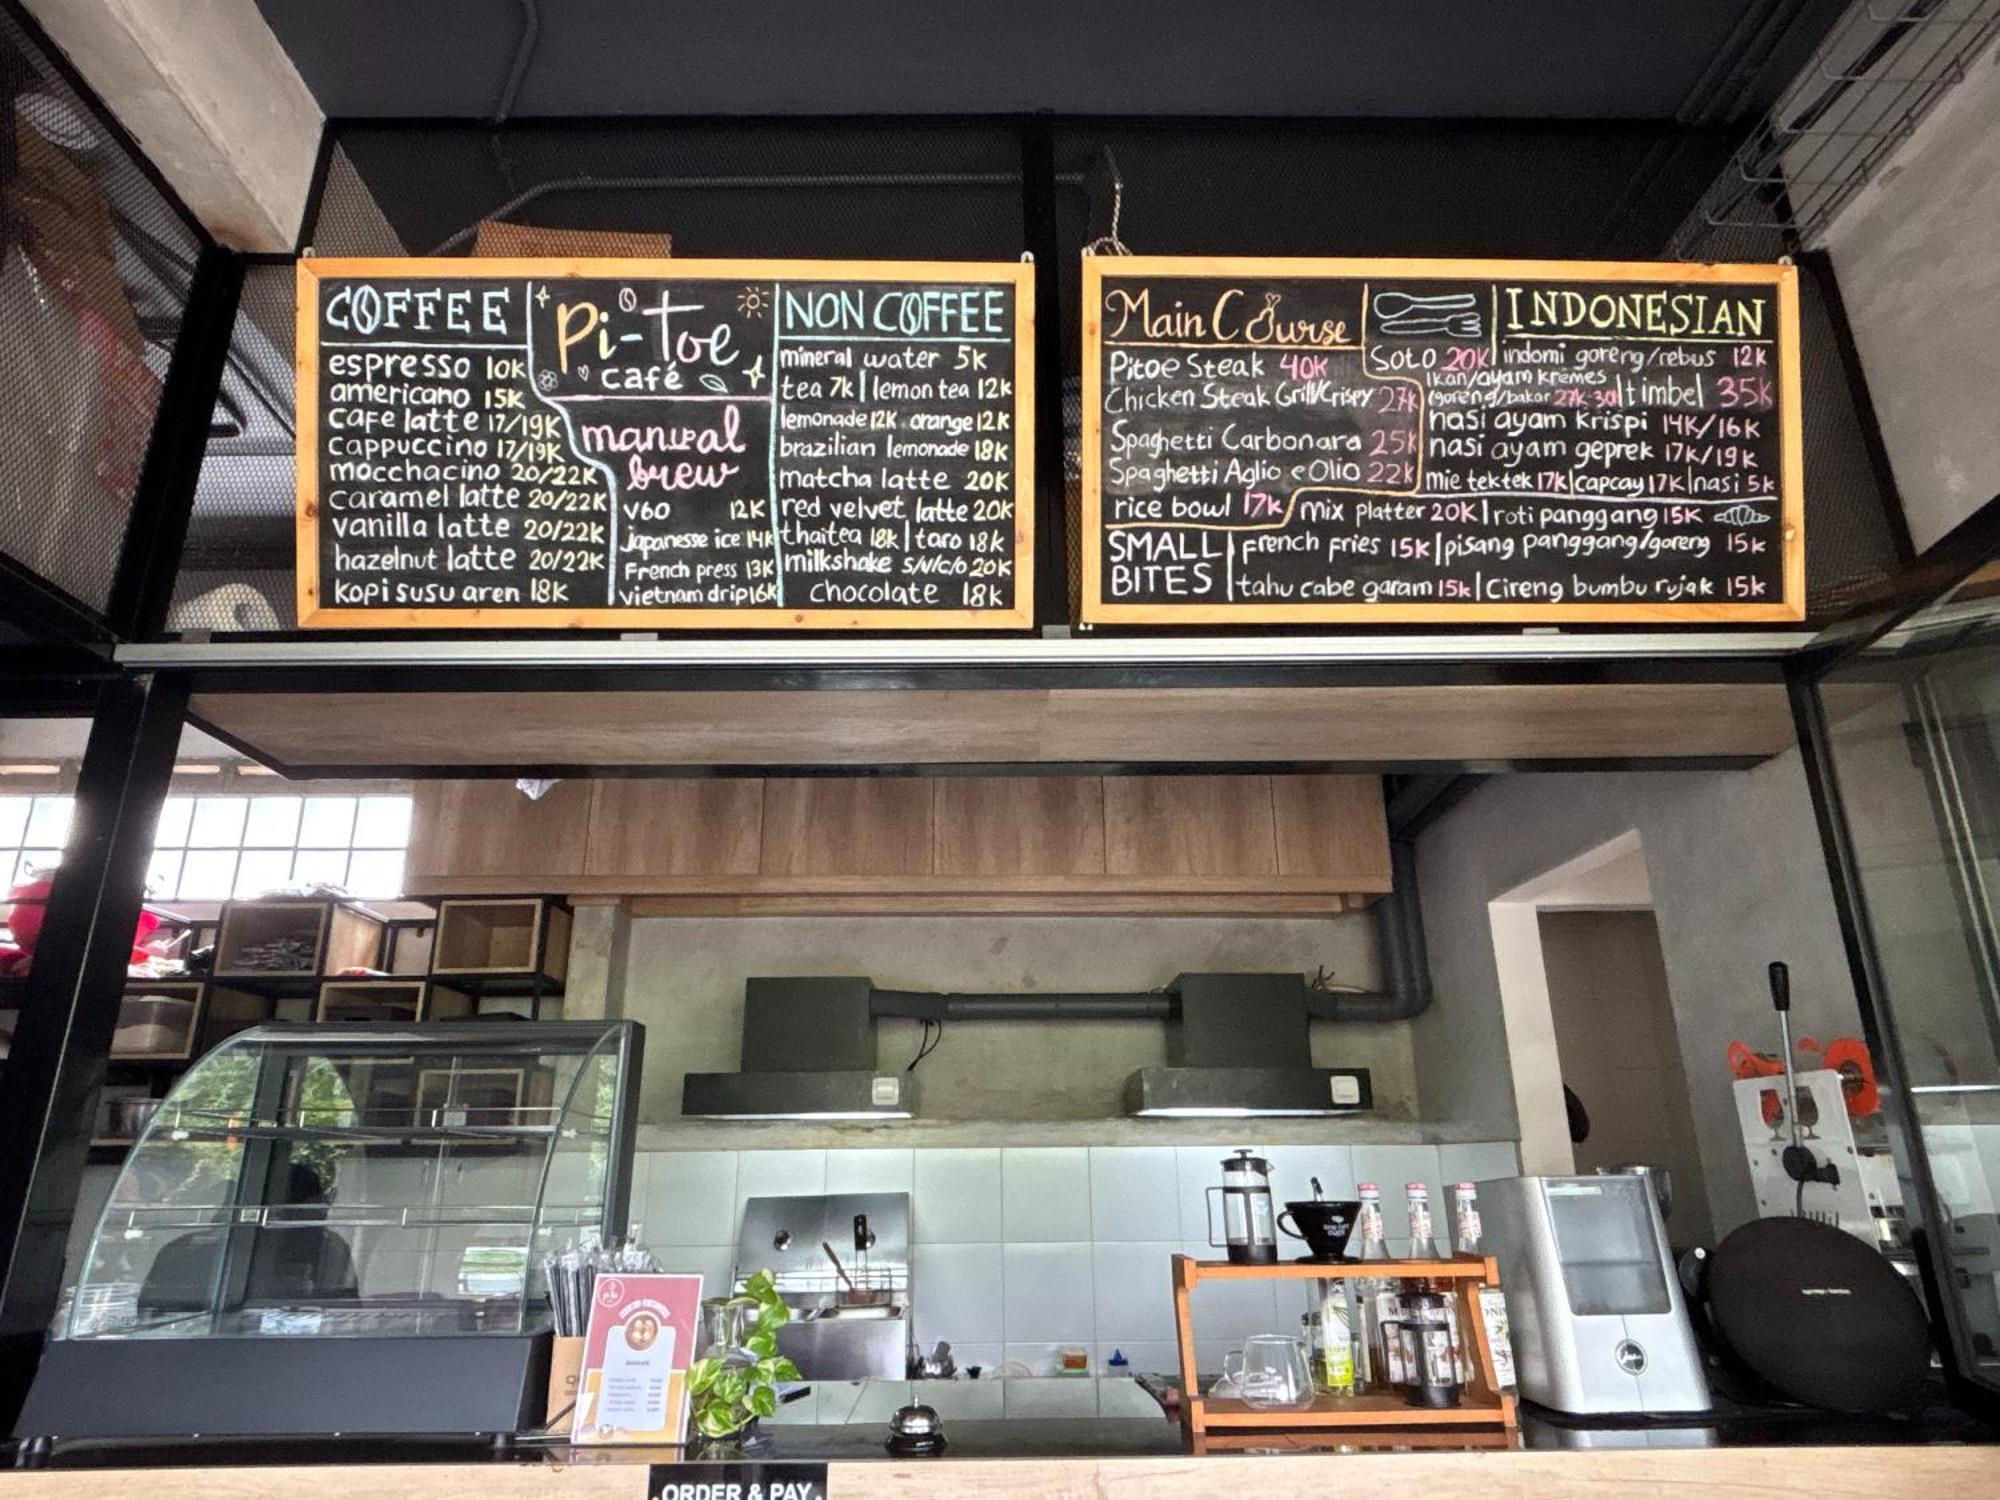 COFFEE
espresso 10K
americano 15K
cafe latte 17/19K
cappuccino 17/19K
mocchacino 20/22K
caramel latte 20/22K
vanilla latte 20/22K
hazelnut latte 20/22K
kopi susu aren 18K
Pi-Toe
café
manual
brew
V60 12K
japanesse ice 14K
French press 13K
vietnam drip 16K
NON COFFEE
mineral water 5K
tea 7K | lemon tea 12K
lemonade 12K . orange 12K
brazilian lemonade 18K
matcha latte 20K
red velvet latte 20K
thaitea 18K | taro 18K
milkshake s/v/c/o 20K
chocolate 18K
Main Course
Pitoe Steak 40K
Chicken Steak Grill/Crispy 27K
Spaghetti Carbonara 25K
Spaghetti Aglio e Olio 22K
rice bowl 17K
INDONESIAN
Soto 20K | indomi goreng/rebus 12K
ikan/ayam kremes
(goreng/bakar 27K-30K | timbel 35K
nasi ayam krispi 14K/16K
nasi ayam geprek 17K/19K
mie tektek 17K | capcay 17K | nasi 5K
mix platter 20K | roti panggang 15K
SMALL
BITES
French fries 15K | pisang panggang/goreng 15K
tahu cabe garam 15K | Cireng bumbu rujak 15K
ORDER & PAY